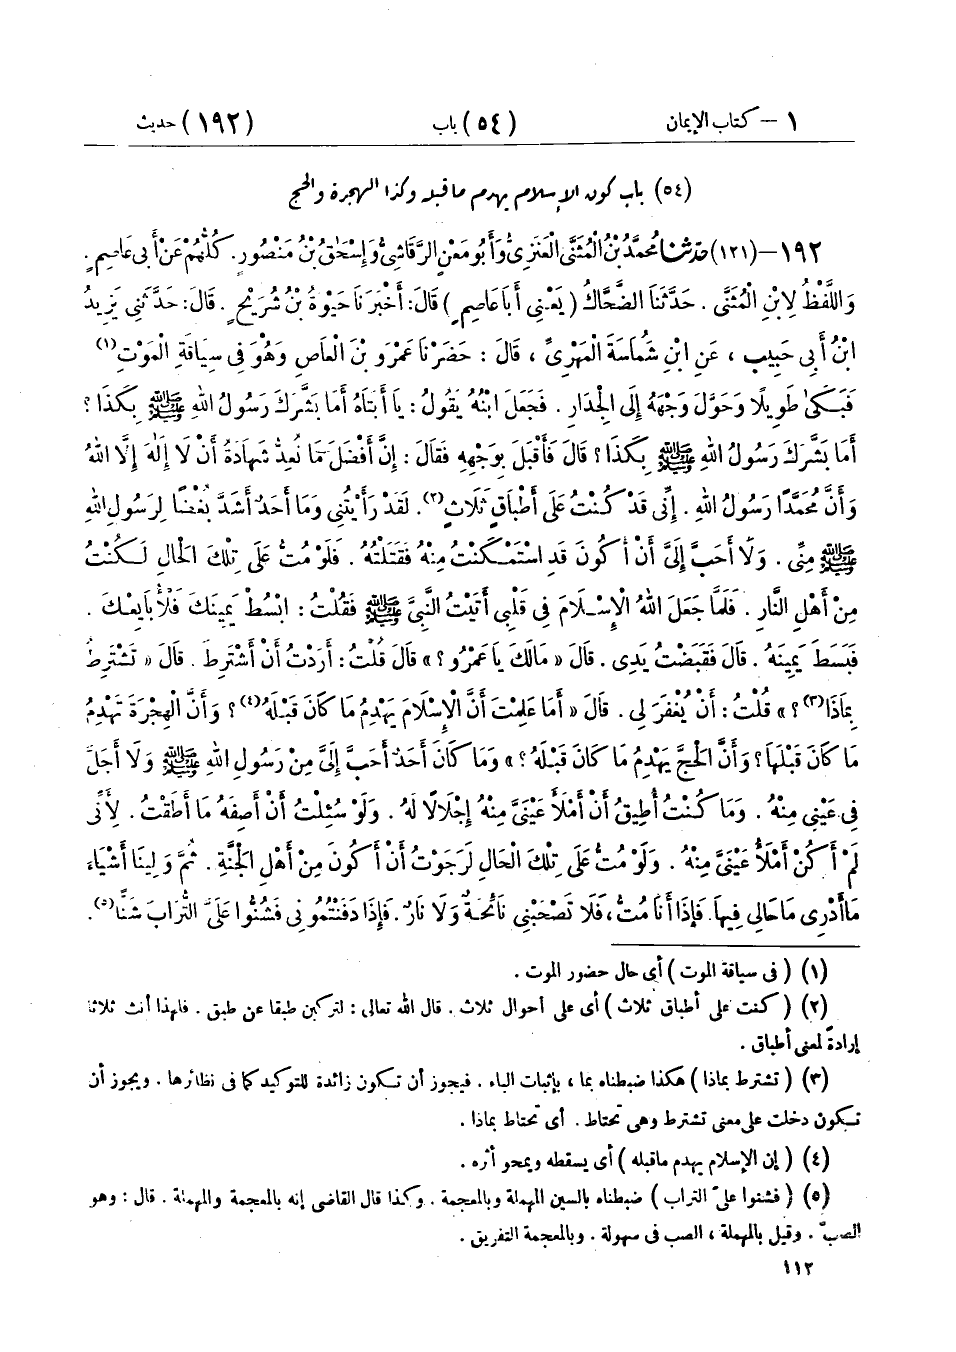 ١ – كتاب الإيمان (٥٤) باب (١٩٢) حديث
(٥٤) باب كون الإسلام يهدم ما قبله وكذا الهجرة والحج
١٩٢ – (١٢١) حدّثنا مُحَمَّدُ بْنُ الْمُثَنَّى الْعَنَزِيُّ وَأَبُو مَعْنٍ الرَّقَاشِيُّ وَإِسْحَاقُ بْنُ مَنْصُورٍ. كُلُّهُمْ عَنْ أَبِي عَاصِمٍ.
وَاللَّفْظُ لِابْنِ الْمُثَنَّى. حَدَّثَنَا الضَّحَّاكُ (يَعْنِي أَبَا عَاصِمٍ) قَالَ: أَخْبَرَنَا حَيْوَةُ بْنُ شُرَيْحٍ. قَالَ: حَدَّثَنِي يَزِيدُ
ابْنُ أَبِي حَبِيبٍ، عَنِ ابْنِ شُمَاسَةَ الْمَهْرِيِّ، قَالَ: حَضَرْنَا عَمْرَو بْنَ الْعَاصِ وَهُوَ فِي سِيَاقَةِ الْمَوْتِ(١)
فَبَكَى طَوِيلًا وَحَوَّلَ وَجْهَهُ إِلَى الْجِدَارِ. فَجَعَلَ ابْنُهُ يَقُولُ: يَا أَبَتَاهُ أَمَا بَشَّرَكَ رَسُولُ اللهِ ﷺ بِكَذَا؟
أَمَا بَشَّرَكَ رَسُولُ اللهِ ﷺ بِكَذَا؟ قَالَ فَأَقْبَلَ بِوَجْهِهِ فَقَالَ: إِنَّ أَفْضَلَ مَا نُعِدُّ شَهَادَةُ أَنْ لَا إِلَهَ إِلَّا اللهُ
وَأَنَّ مُحَمَّدًا رَسُولُ اللهِ. إِنِّي قَدْ كُنْتُ عَلَى أَطْبَاقٍ ثَلَاثٍ(٢). لَقَدْ رَأَيْتُنِي وَمَا أَحَدٌ أَشَدَّ بُغْضًا لِرَسُولِ اللهِ
ﷺ مِنِّي. وَلَا أَحَبَّ إِلَيَّ أَنْ أَكُونَ قَدِ اسْتَمْكَنْتُ مِنْهُ فَقَتَلْتُهُ. فَلَوْ مُتُّ عَلَى تِلْكَ الْحَالِ لَكُنْتُ
مِنْ أَهْلِ النَّارِ. فَلَمَّا جَعَلَ اللهُ الْإِسْلَامَ فِي قَلْبِي أَتَيْتُ النَّبِيَّ ﷺ فَقُلْتُ: ابْسُطْ يَمِينَكَ فَلْأُبَايِعْكَ.
فَبَسَطَ يَمِينَهُ. قَالَ فَقَبَضْتُ يَدِي. قَالَ «مَالَكَ يَا عَمْرُو؟» قَالَ قُلْتُ: أَرَدْتُ أَنْ أَشْتَرِطَ. قَالَ «تَشْتَرِطُ
بِمَاذَا(٣)؟» قُلْتُ: أَنْ يُغْفَرَ لِي. قَالَ «أَمَا عَلِمْتَ أَنَّ الْإِسْلَامَ يَهْدِمُ مَا كَانَ قَبْلَهُ(٤)؟ وَأَنَّ الْهِجْرَةَ تَهْدِمُ
مَا كَانَ قَبْلَهَا؟ وَأَنَّ الْحَجَّ يَهْدِمُ مَا كَانَ قَبْلَهُ؟» وَمَا كَانَ أَحَدٌ أَحَبَّ إِلَيَّ مِنْ رَسُولِ اللهِ ﷺ وَلَا أَجَلَّ
فِي عَيْنِي مِنْهُ. وَمَا كُنْتُ أُطِيقُ أَنْ أَمْلَأَ عَيْنَيَّ مِنْهُ إِجْلَالًا لَهُ. وَلَوْ سُئِلْتُ أَنْ أَصِفَهُ مَا أَطَقْتُ. لِأَنِّي
لَمْ أَكُنْ أَمْلَأُ عَيْنَيَّ مِنْهُ. وَلَوْ مُتُّ عَلَى تِلْكَ الْحَالِ لَرَجَوْتُ أَنْ أَكُونَ مِنْ أَهْلِ الْجَنَّةِ. ثُمَّ وَلِينَا أَشْيَاءَ
مَا أَدْرِي مَا حَالِي فِيهَا. فَإِذَا أَنَا مُتُّ، فَلَا تَصْحَبْنِي نَائِحَةٌ وَلَا نَارٌ. فَإِذَا دَفَنْتُمُونِي فَشُنُّوا عَلَيَّ التُّرَابَ شَنًّا(٥).
(١) (في سياقة الموت) أي حال حضور الموت.
(٢) (كنت على أطباق ثلاث) أي على أحوال ثلاث. قال الله تعالى: لتركبن طبقا عن طبق. فلهذا أنث ثلاثا
إرادةً لمعنى أطباق.
(٣) (تشترط بماذا) هكذا ضبطناه بما، بإثبات الباء. فيجوز أن تكون زائدة للتوكيد كما في نظائرها. ويجوز أن
تكون دخلت على معنى تشترط وهي تحتاط. أي تحتاط بماذا.
(٤) (إن الإسلام يهدم ماقبله) أي يسقطه ويمحو أثره.
(٥) (فشنوا عليّ التراب) ضبطناه بالسين المهملة وبالمعجمة. وكذا قال القاضي إنه بالمعجمة والمهملة. قال: وهو
الصبّ. وقيل بالمهملة، الصب في سهولة. وبالمعجمة التفريق.
١١٢